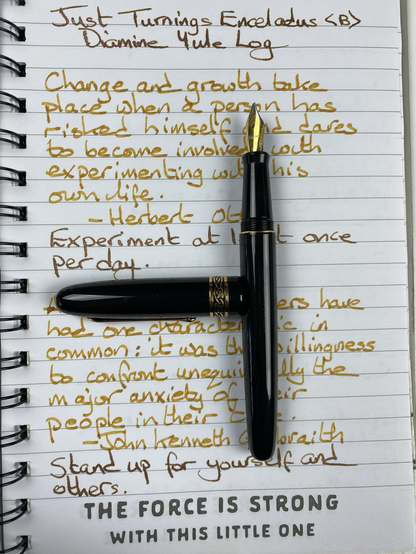 Just Turnings Enceladus <B>
Diamine Yule Log
Change and growth take
place when a person has
risked himself and dares
to become involved with
experimenting with his
own life.
- Herbert
Experiment at once
per day.
have
had one in
common: it was the willingness
to confront the
major anxiety of
people in their
- John Kenneth
Stand up for yourself and
others.
THE FORCE IS STRONG
WITH THIS LITTLE ONE